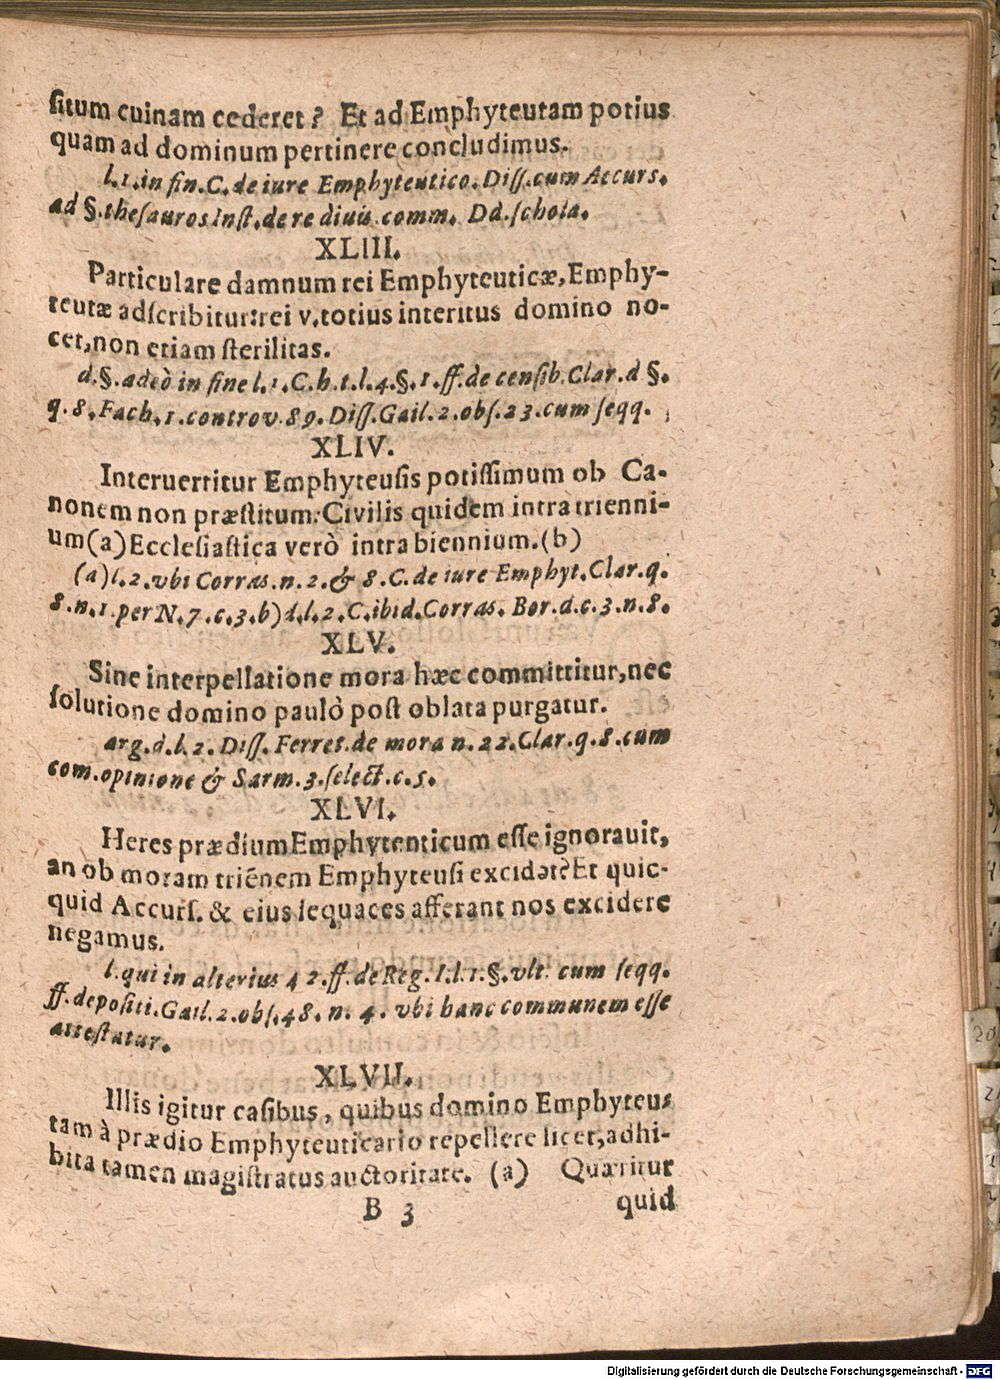 situm cuinam cederet? Et ad Emphyteutam potius
quam ad dominum pertinere concludimus.
l.1.in fin.C.de iure Emphyteutico.Diss.cum Accurs.
ad §.thesauros Inst.de re diuis.comm. Dd.schola.
XLIII.
Particulare damnum rei Emphyteuticæ,Emphy-
teutæ adscribitur:rei v.totius interitus domino no-
cet,non etiam sterilitas.
d.§.adeò in fine l.1.C.h.t.l.4.§.1.ff.de censib.Clar.d §.
q.8.Fach.1.controv.89.Diss.Gail.2.obs.23.cum seqq.
XLIV.
Interuertitur Emphyteusis potissimum ob Ca-
nonem non præstitum:Civilis quidem intra trienni-
um(a)Ecclesiastica verò intra biennium.(b)
(a)l.2.vbi Corras.n.2.& 8.C.de iure Emphyt.Clar.q.
8.n.1.per N.7.c.3.b)d.l.2.C.ibid.Corras. Bor.d.c.3.n.8.
XLV.
Sine interpellatione mora hæc committitur,nec
solutione domino paulò post oblata purgatur.
arg.d.l.2. Diss. Ferret.de mora n.22.Clar.q.8.cum
com.opinione & Sarm.3.select.c.5.
XLVI.
Heres prædium Emphytenticum esse ignorauit,
an ob moram triēnem Emphyteusi excidat?Et quic-
quid Accurs. & eius sequaces afferant nos excidere
negamus.
l.qui in alterius 42.ff.de Reg.I.l.1.§.vlt. cum seqq.
ff.depositi.Gail.2.obs.48.n. 4. vbi hanc communem esse
attestatur.
XLVII.
Illis igitur casibus, quibus domino Emphyteu-
tam à prædio Emphyteuticario repellere licet,adhi-
bita tamen magistratus auctoritate. (a) Quæritur
B 3 quid
Digitalisierung gefördert durch die Deutsche Forschungsgemeinschaft - DFG